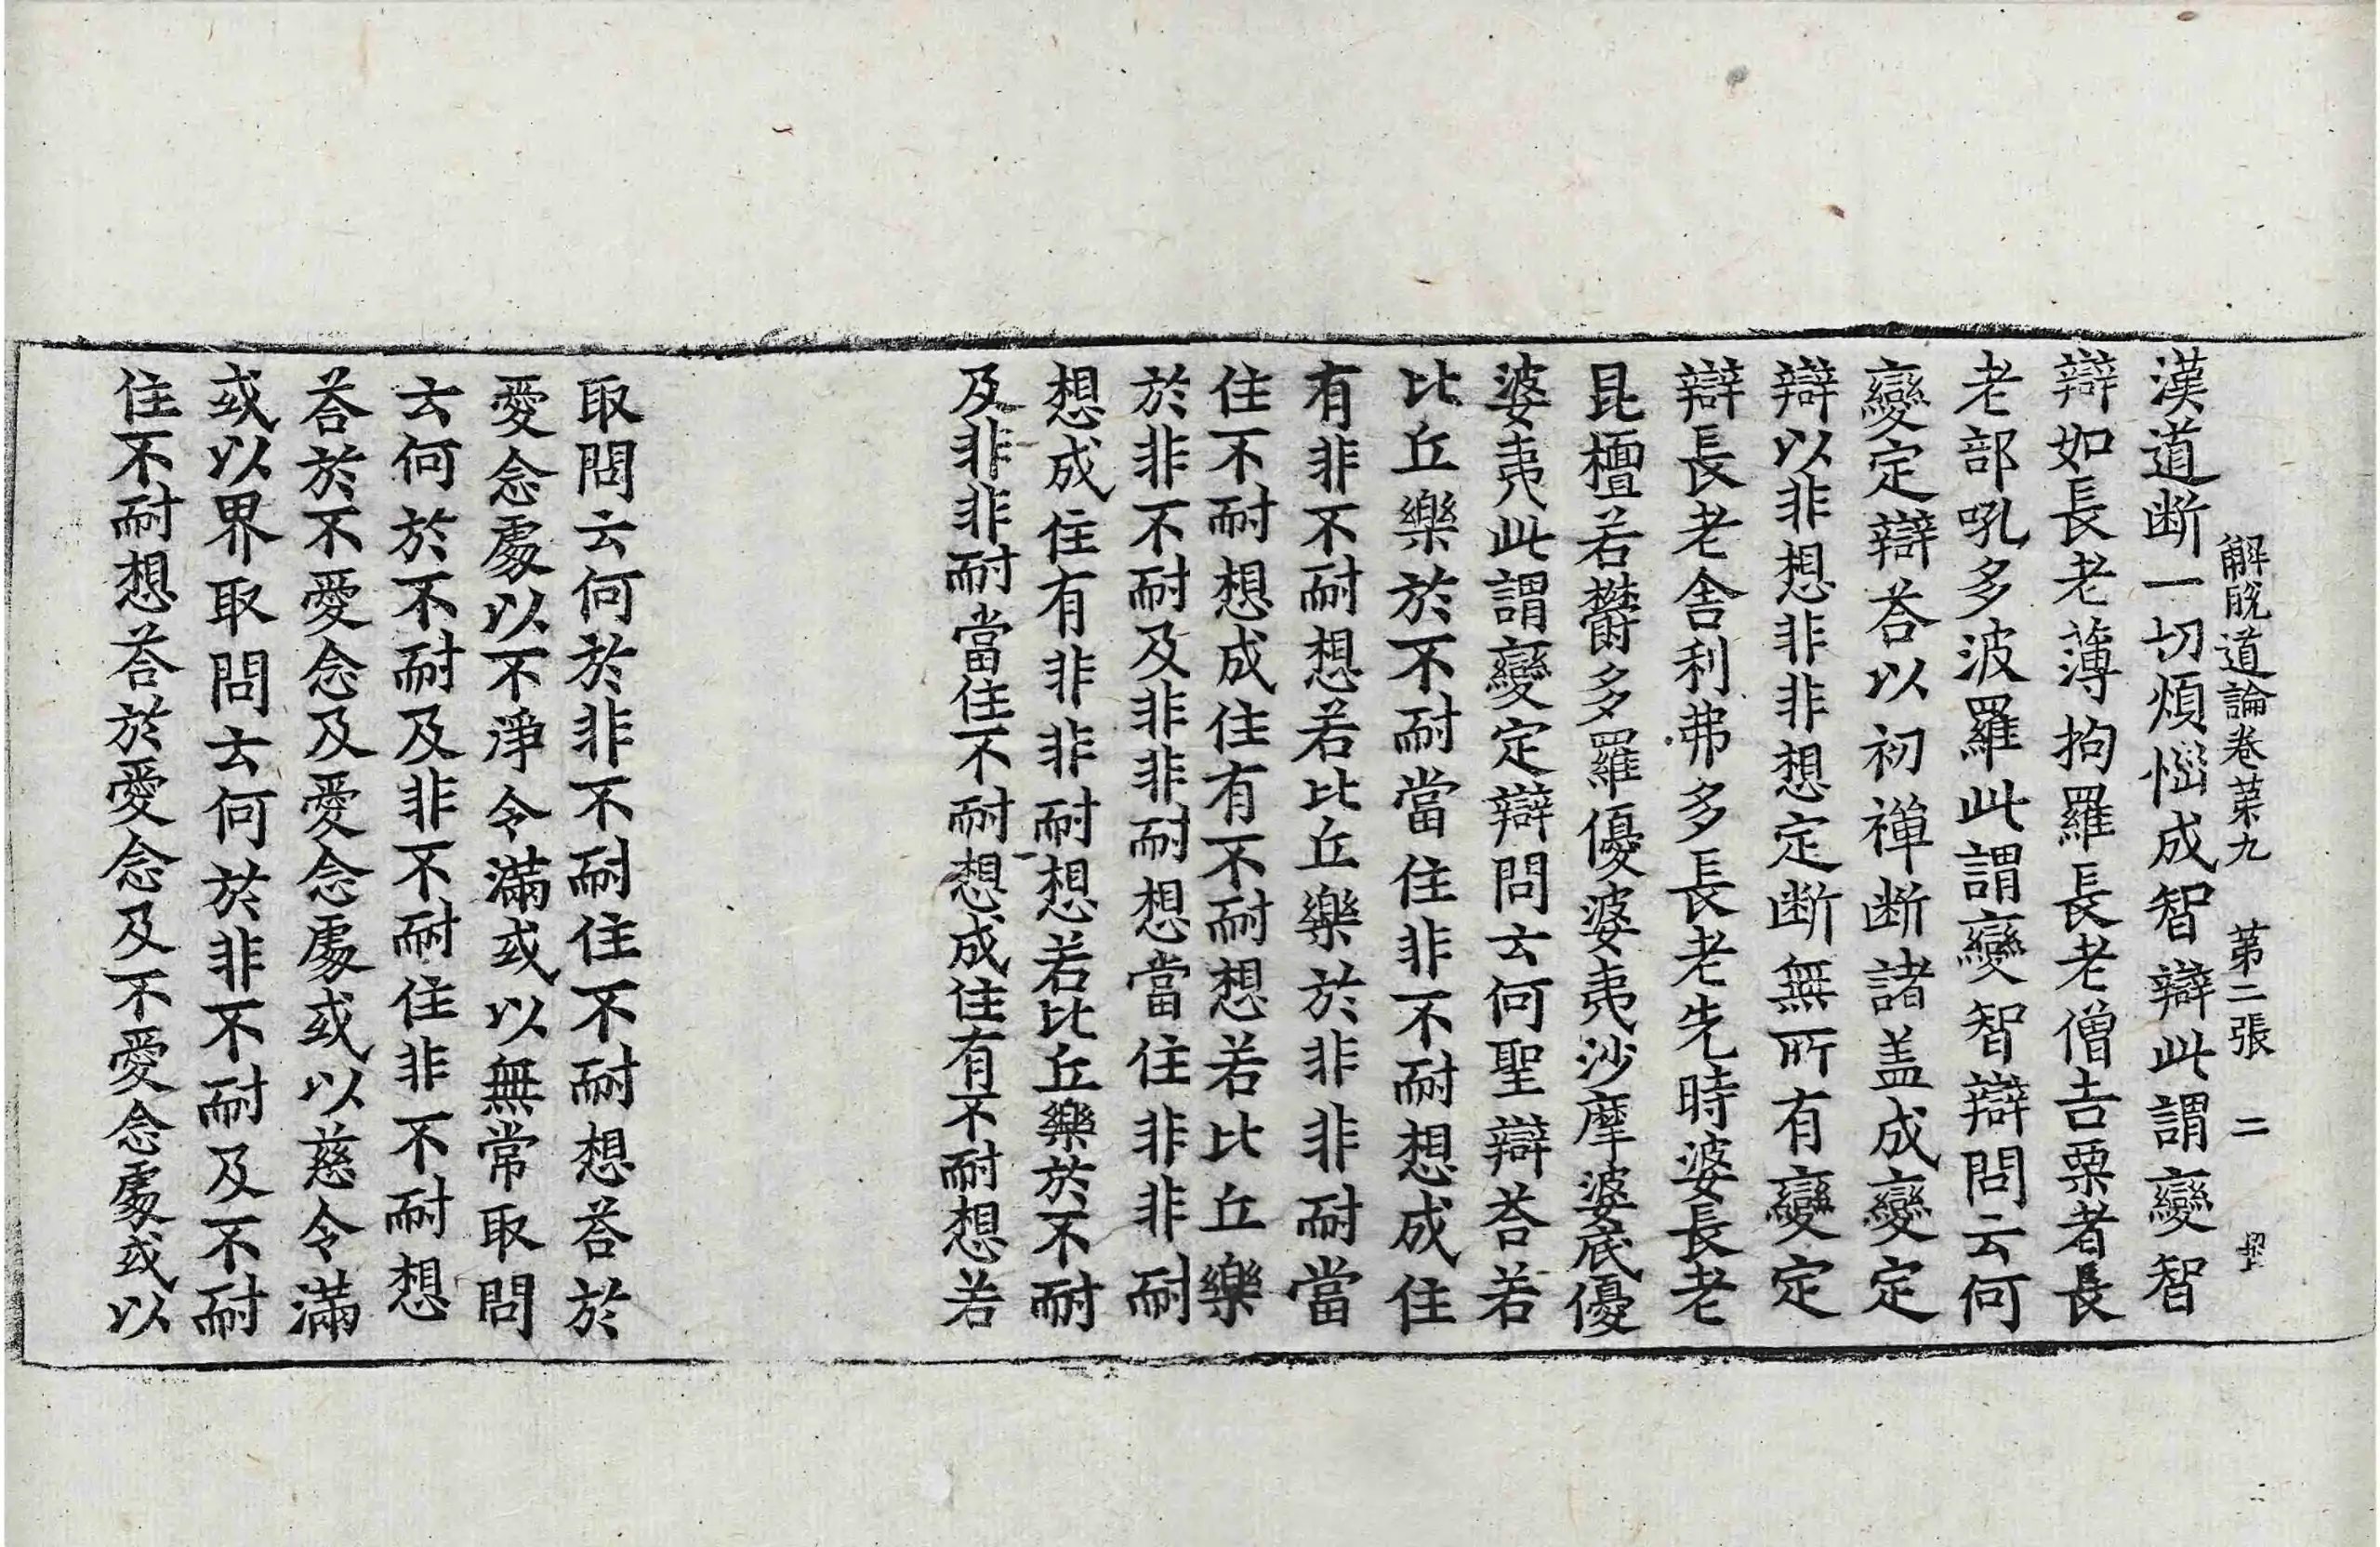 解脫道論卷第九 第二張 二
漢道断一切煩惱成智辯此謂變智
辯如長老薄拘羅長老僧吉栗者長
老部吼多波羅此謂變智辯問云何
變定辯荅以初禅断諸盖成變定
辯以非想非非想定断無所有變定
辯長老舍利弗多長老先時婆長老
昆檀若欝多羅優婆夷沙摩婆底優
婆夷此謂變定辯問云何聖辯荅若
比丘樂於不耐當住非不耐想成住
有非不耐想若比丘樂於非非耐當
住不耐想成住有不耐想若比丘樂
於非不耐及非非耐想當住非非耐
想成住有非非耐想若比丘樂於不耐
及非非耐當住不耐想成住有不耐想若
取問云何於非不耐住不耐想荅於
愛念處以不淨令滿或以無常取問
云何於不耐及非不耐住非不耐想
荅於不愛念及愛念處或以慈令滿
或以界取問云何於非不耐及不耐
住不耐想荅於愛念及不愛念處或以